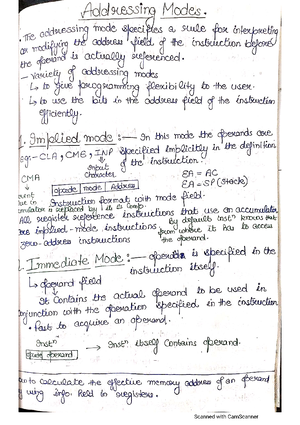 Addressing Modes.
• The addressing mode specifies a rule for interpreting
or modifying the address field of the instruction before
the operand is actually referenced.
— Variety of addressing modes
↳ to give programming flexibility to the user.
↳ to use the bits in the address field of the instruction
efficiently.
1. Implied mode :— In this mode the operands are
eg:- CLA, CME, INP specified implicitly in the definition
Input of the instruction.
Character.
CMA
EA = AC
opcode mode Address
EA = SP (Stack)
Instruction format with mode field.
is replaced by its Comp.
All register reference instructions that use an accumulator
are implied-mode instructions
by default instⁿ knows
from where it has to access
the operand.
zero-address instructions
Immediate Mode :— operand is specified in the
instruction itself.
↳ operand field
↳ It contains the actual operand to be used in
conjunction with the operation specified in the instruction
• Fast to acquire an operand.
Instⁿ
operand → Instⁿ itself contains operand.
to calculate the effective memory address of an operand
by using info. held in registers.
Scanned with CamScanner